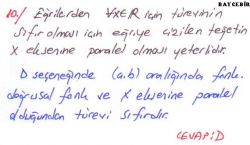 BAYÇEBİR
10/ Eğrilerden ∀x∈R için türevinin
sıfır olması için eğriye çizilen teğetin
X eksenine paralel olması yeterlidir.
D seçeneğinde (a,b) aralığında fonk.
doğrusal fonk ve X eksenine paralel
olduğundan türevi sıfırdır.
CEVAP:D